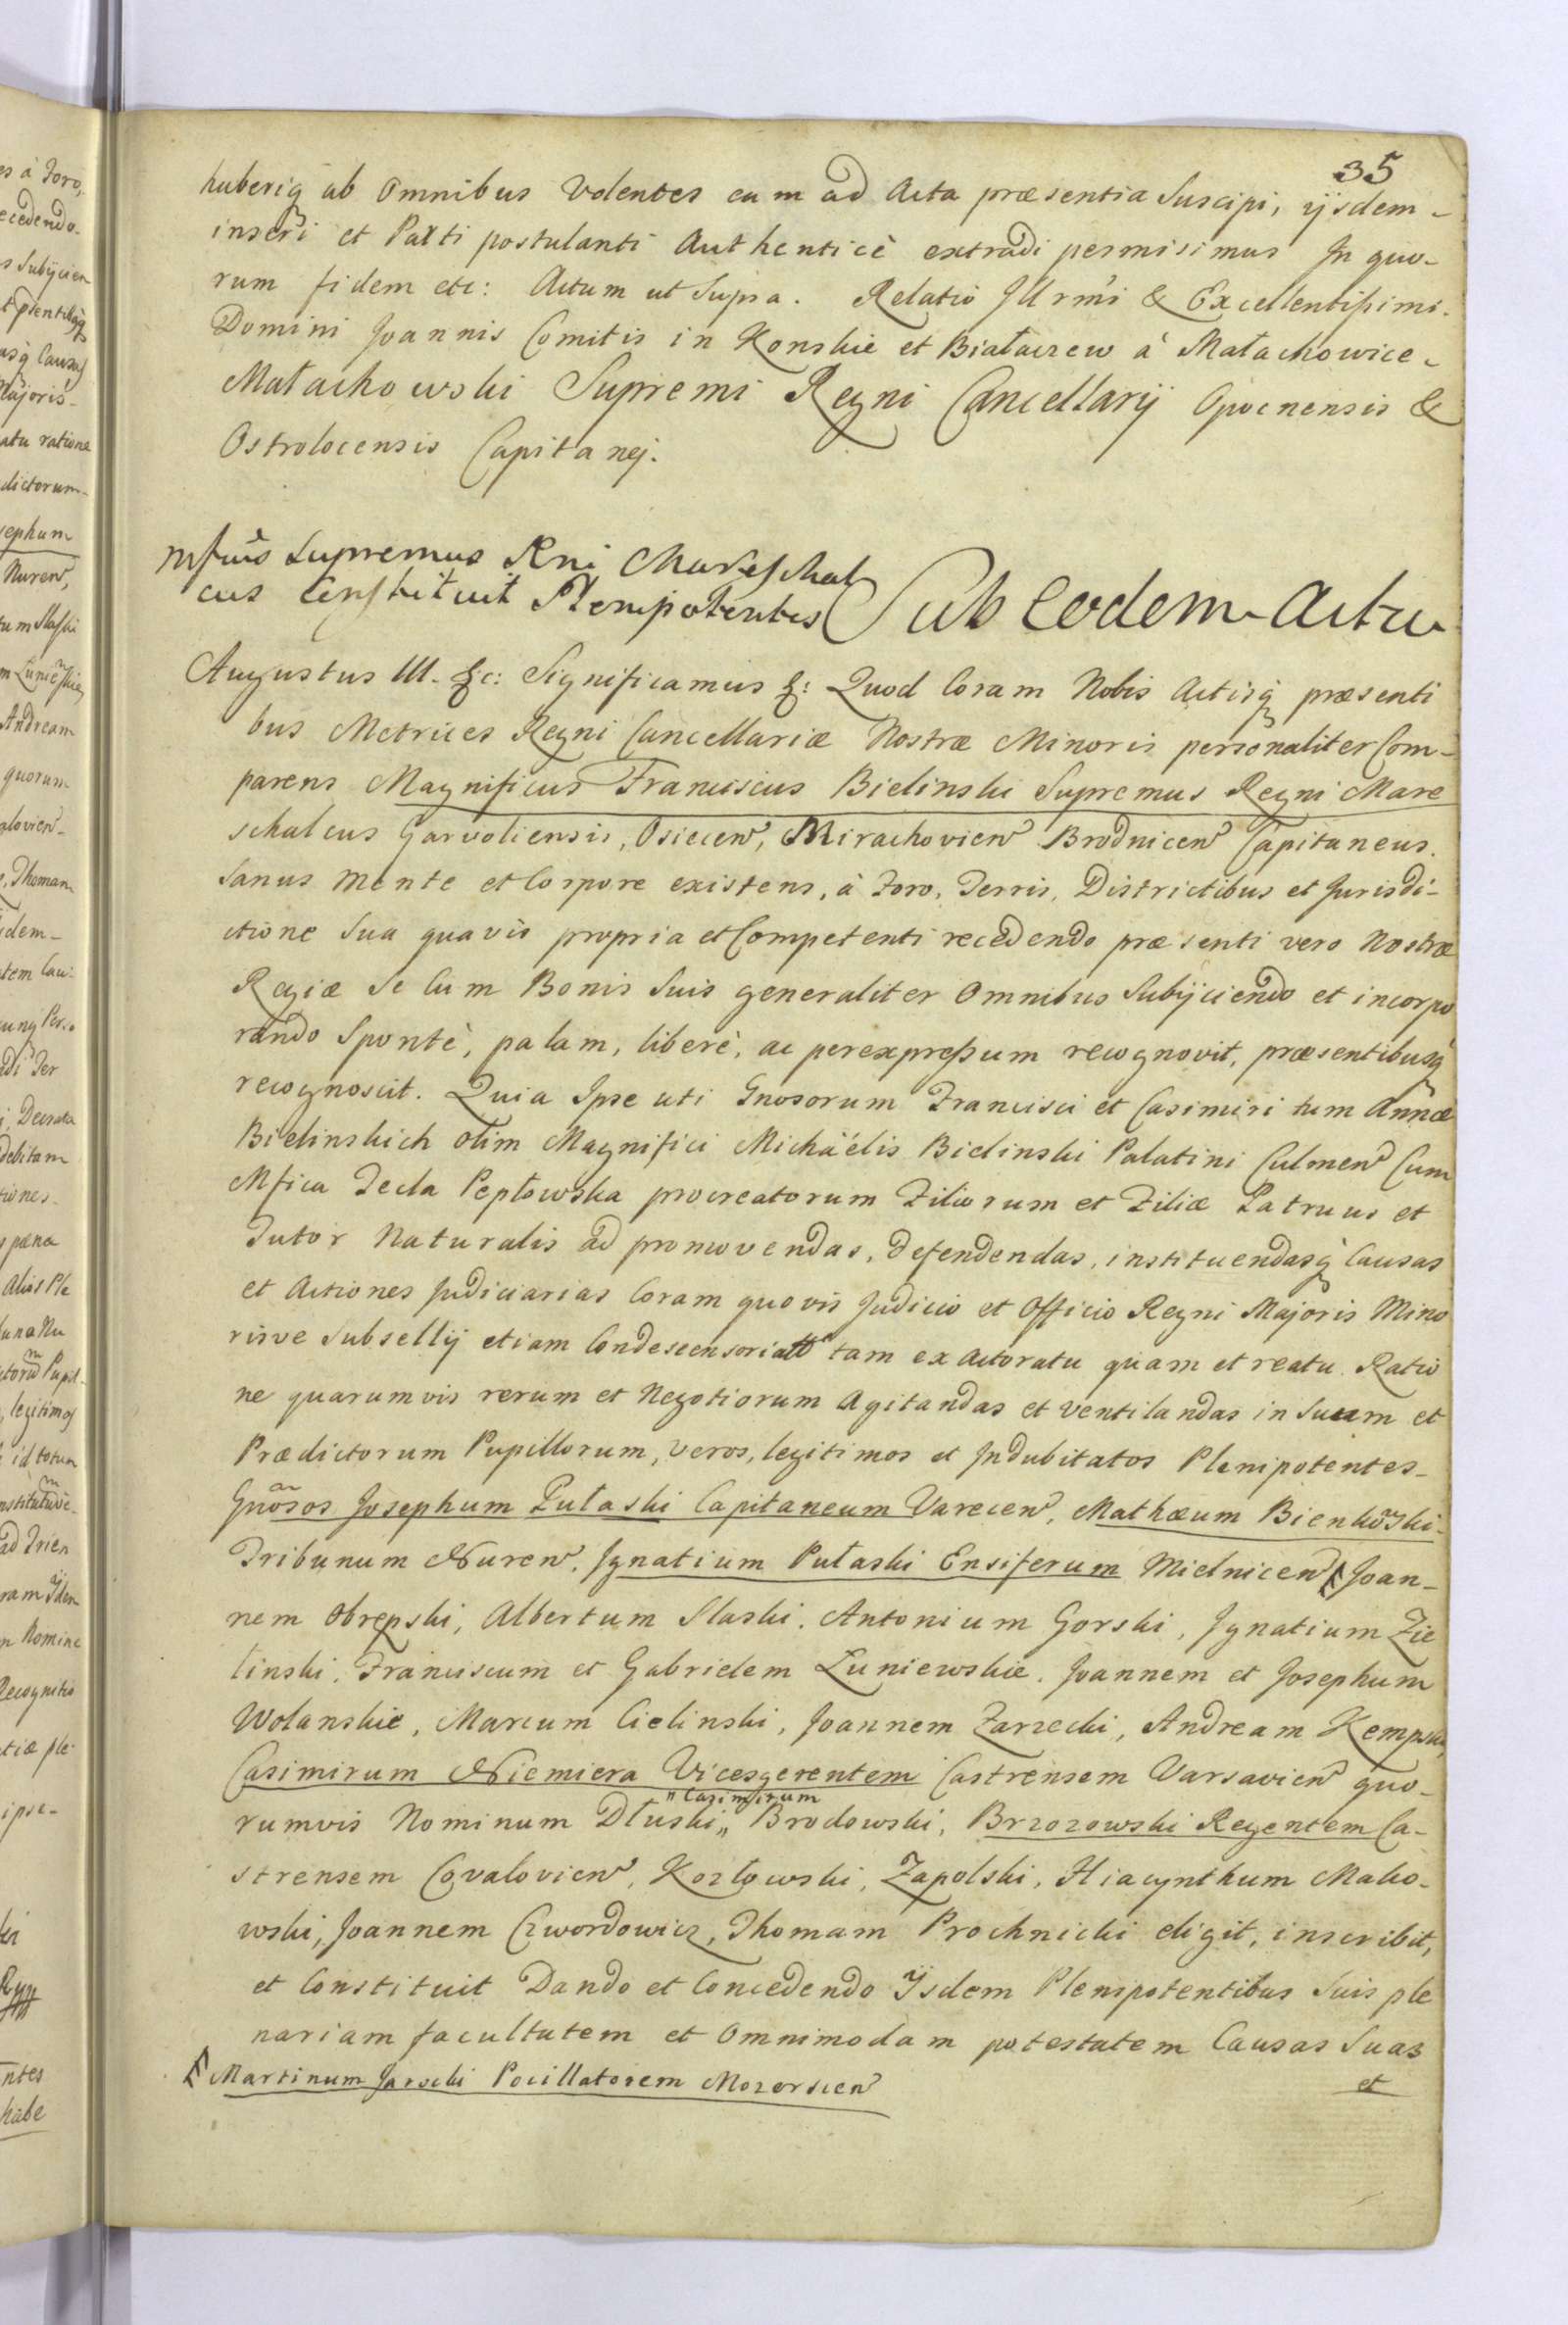 35
huberiq ab Omnibus Volentes eam ad Acta præsentia Suscipi, ijsdem
inseri et Parti postulanti Authenticè extradi permisimus In quo-
rum fidem etc: Actum ut Supra. Relatio Illrmi & Excellentissimi
Domini Joannis Comitis in Konskie et Białaczew à Małachowice
Małachowski Supremi Regni Cancellarij Opocnensis &
Ostrolocensis Capitanej.
Mfcus Supremus Rni Mareschal
cus Constituit Plenipotentes
Sub Eodem Actu
Augustus III. &c: Significamus &: Quod Coram Nobis Actisq præsenti
bus Metrices Regni Cancellariæ Nostræ Minoris personaliter Com-
parens Magnificus Franciscus Bielinski Supremus Regni Mare
schalcus Garvoliensis, Osiecen, Mirachovien Brodnicen Capitaneus.
Sanus Mente et Corpore existens, à Foro, Terris, Districtibus et Jurisdi-
ctione Sua quavis propria et Competenti recedendo præsenti vero Nostræ
Regiæ Se Cum Bonis Suis generaliter Omnibus Subijciendo et incorpo
rando Spontè, palam, liberè, ac perexpressum recognovit, præsentibusq
recognoscit. Quia Ipse uti Gnosorum Francisci et Casimiri tum Annæ
Bielinskich olim Magnifici Michaëlis Bielinski Palatini Culmen Cum
Mfica Tecla Pepłowska procreatorum Filiorum et Filiæ Patruus et
Tutor Naturalis ad promovendas, defendendas, instituendasq Causas
et Actiones Judiciarias Coram quovis Judicio et Officio Regni Majoris Mino
risve Subsellij etiam Condescensoriali tam ex Actoratu quam et reatu Ratio
ne quarumvis rerum et Negotiorum Agitandas et ventilandas in Suam et
Prædictorum Pupillorum, veros, legitimos et Indubitatos Plenipotentes
Gnosos Josephum Pułaski Capitaneum Varecen, Mathæum Bienkoski
Tribunum Nuren, Ignatium Pułaski Ensiferum Mielnicen Joan-
nem Obrępski, Albertum Slaski, Antonium Gorski, Ignatium Zie
linski, Franciscum et Gabrielem Łuniewskie, Joannem et Josephum
Wolanskie, Marcum Cielinski, Joannem Zarzecki, Andream Kempski
Casimirum Niemiera Vicesgerentem Castrensem Varsavien quo-
"Casimirum
rumvis Nominum Dłuski,, Brodowski, Brzozowski Regentem Ca-
strensem Covalovien, Kozłowski, Zapolski, Hiacynthum Mako-
wski, Joannem Czwordowicz, Thomam Prochnicki eligit, inscribit,
et Constituit Dando et Concedendo Ijsdem Plenipotentibus Suis ple
nariam facultatem et Omnimodam potestatem Causas Suas
Martinum Jarocki Pocillatorem Mozerscen
et